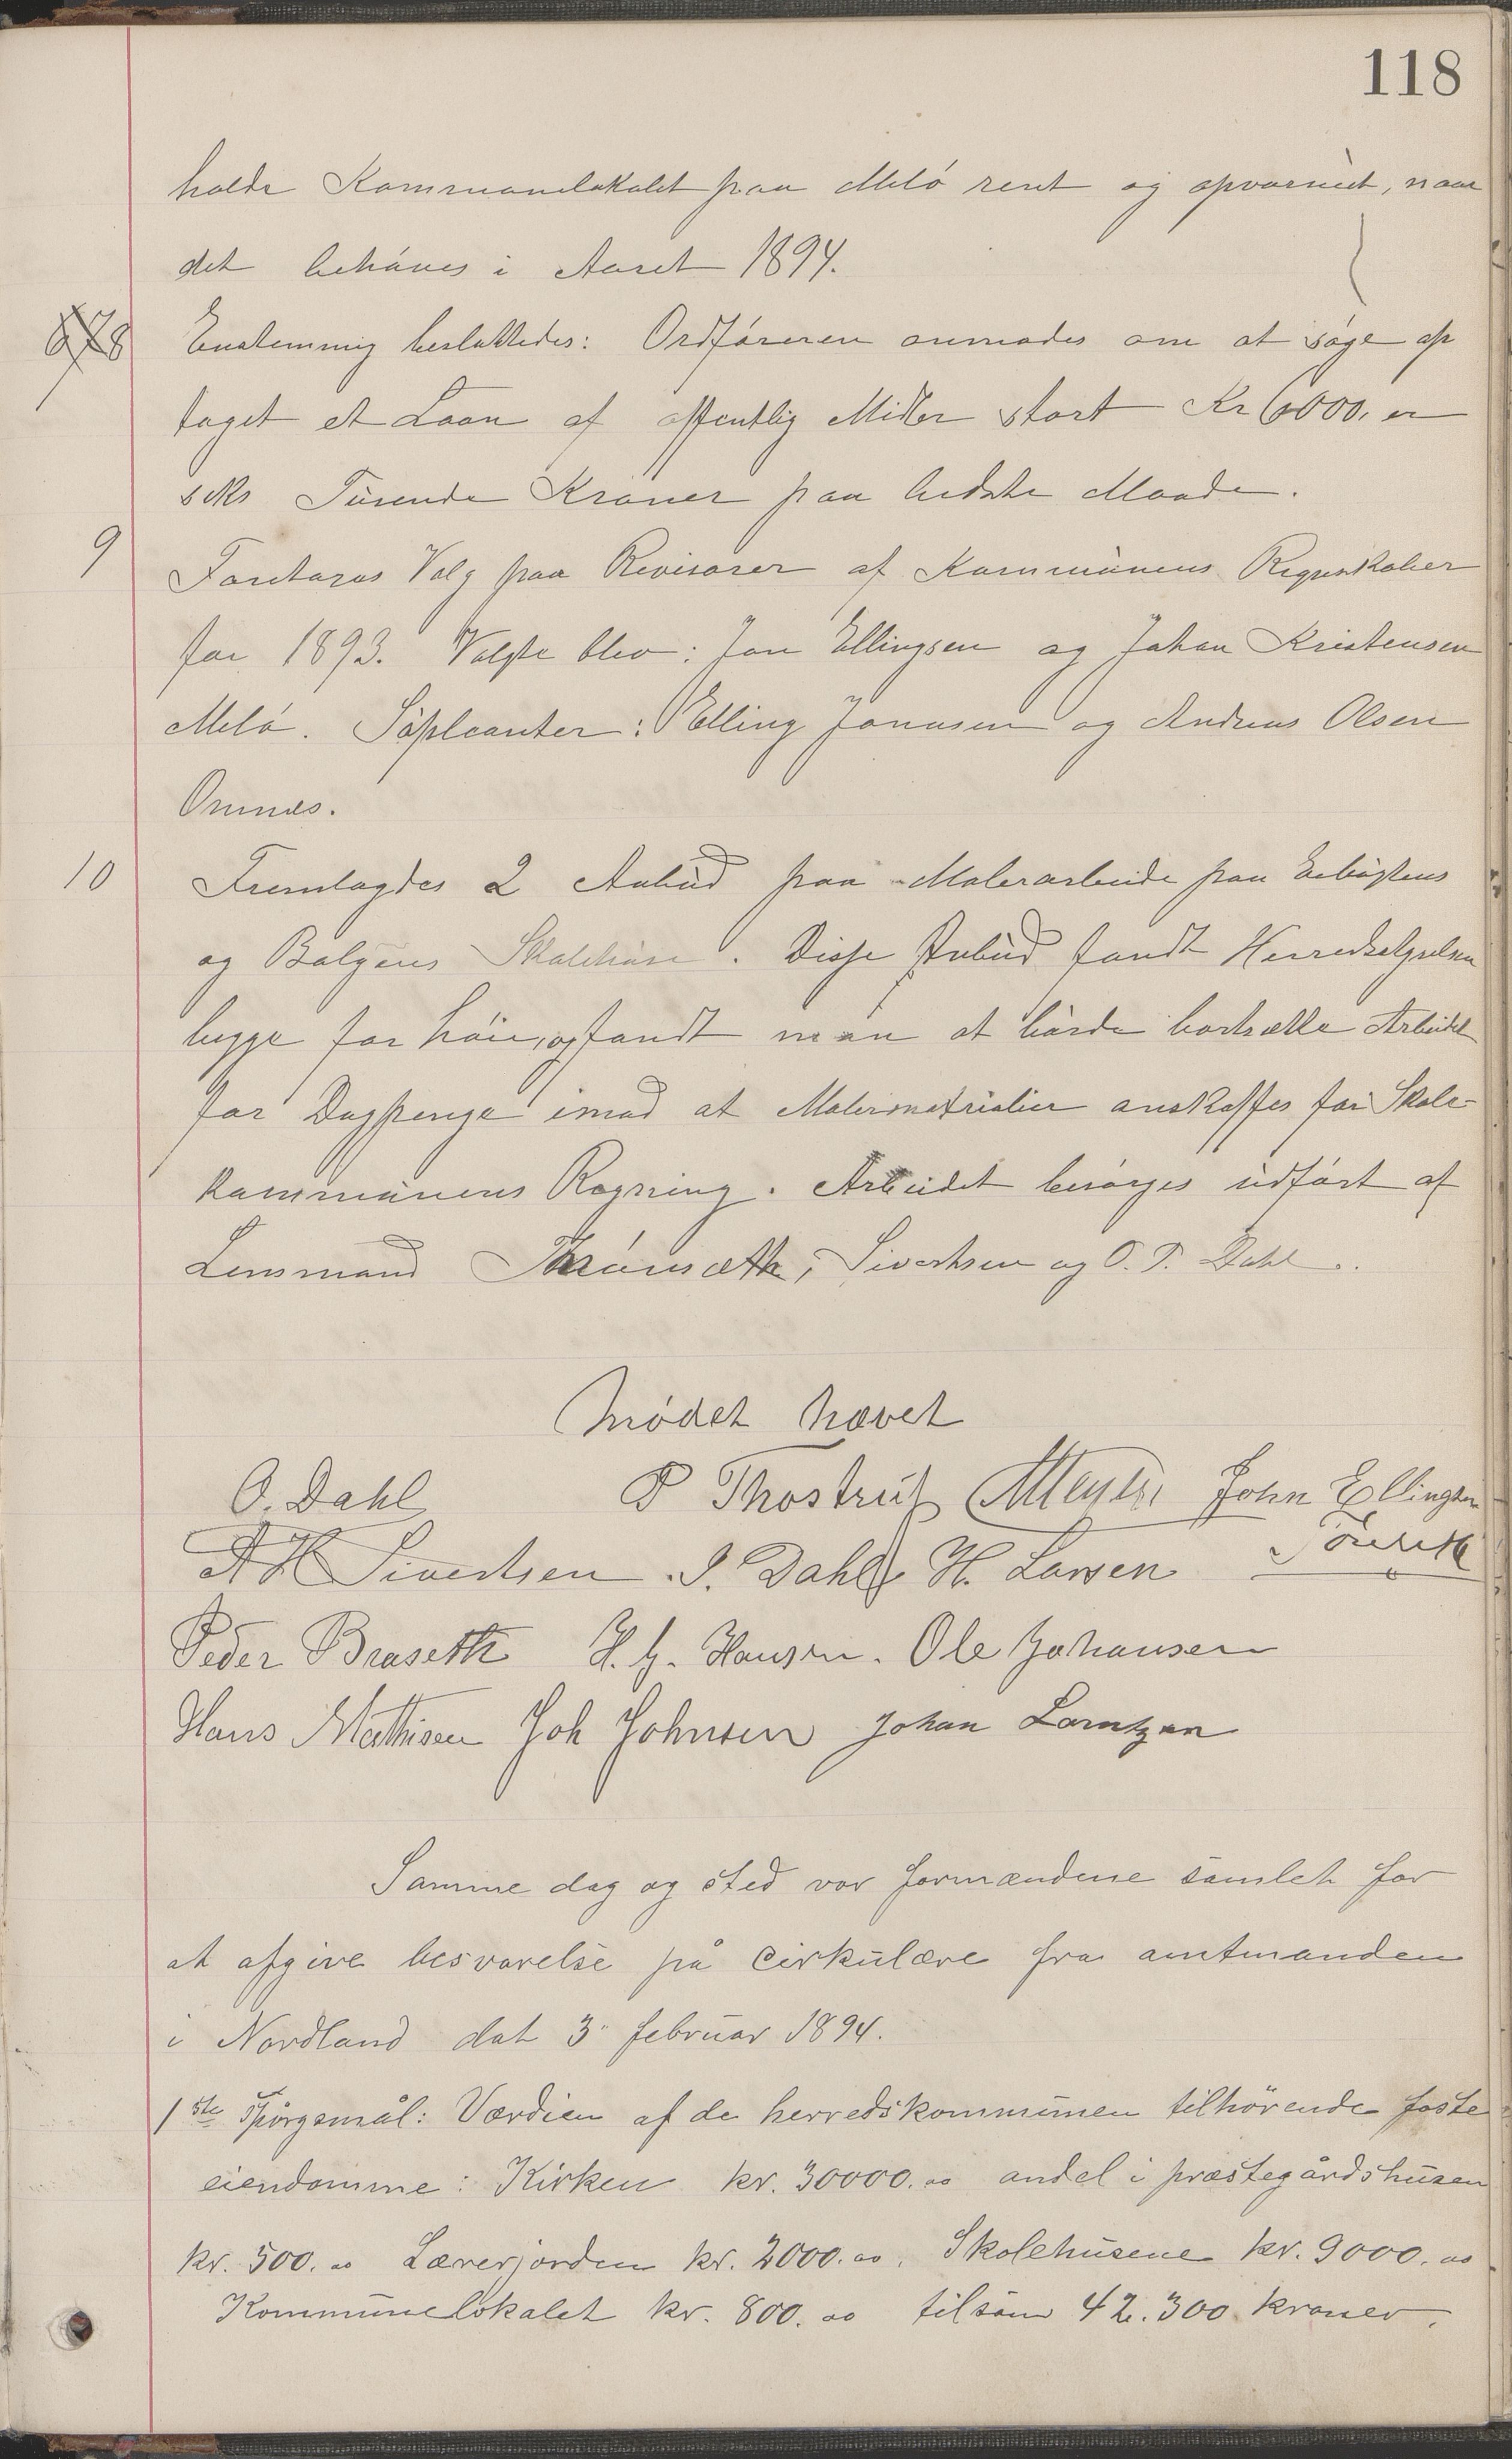 118
holde Kommunelokalet paa Melö rent og opvarmet, naar
det behöves i Aaret 1894.
8 Enstemmig besluttedes: Ordföreren anmodes om at söge op
taget et Laan af offentlig Midler stort Kr 6000, er
seks Tusende Kroner paa bedste Maade.
9 Foretoges Valg paa Revisorer af Kommunens Regnskaber
for 1893. Valgte blev: Jon Ellingsen og Johan Kristensen
Melö. Supleanter: Elling Jonasen og Andreas Olsen
Ornnes.
10 Fremlagdes 2 Anbud paa Malerarbeide paa
og Bolgens Skolehuse. Disse Anbud fandt Herredstyrelsen
begge for höie, og fandt man at burde bortsætte Arbeidet
for Dagpenge imod at Malermaterialier anskaffes for Skole-
kommunens Regning. Arbeidet besörges udfört af
Lensmand Sivertsen og O. P. Dahl.
Mødet hævet
O. Dahl P Thostrup AMeyer John Ellingsen
A H Sivertsen J. Dahl H. Larsen
Peder Braseth H. J. Hansen. Ole Johansen
Hans Mathisen Joh Johnsen Johan Lorntzen
Samme dag og sted var formændene samlet for
at afgive besvarelse på cirkulære fra amtmanden
i Nordland dat 3 februar 1894.
1ste Spörgsmål: Værdien af de herredskommunen tilhörende faste
eiendomme: Kirken kr. 30000.00 andel i præstegårdshusen
kr. 500.00 Lærerjorden kr. 2000.00. Skolehusene kr. 9000.00
Kommunelokalet kr. 800.00 tilsam 42.300 kroner.